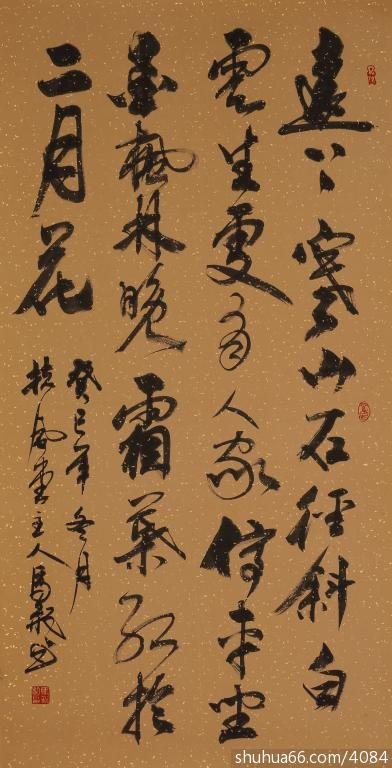 遠上寒山石徑斜白
雲生處有人家停車坐
愛楓林晚霜葉紅於
二月花
癸巳年冬月
扶風堂主人馬书
shuhua66.com/4084